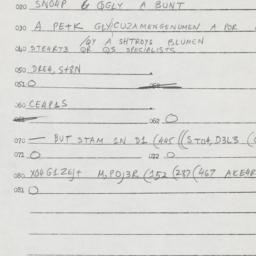 020 SNOAP & GGLY A BUNT
030 A PE+K GLY(CUZAMENGENUMEN A POR
/GY A SHTROYS BLUMEN
040 STEART3 OR OS SPECIALISTS
050 DREA, S+8N
051 O
060 CEAP&S
062 O
070 — BUT STAM IN D1 (A45 ((STOA, D3L3 (
071 O 072 O
080 XO4G1ZEJ+ M, POJ3R (152 (237 (467 AKEAR
081 O